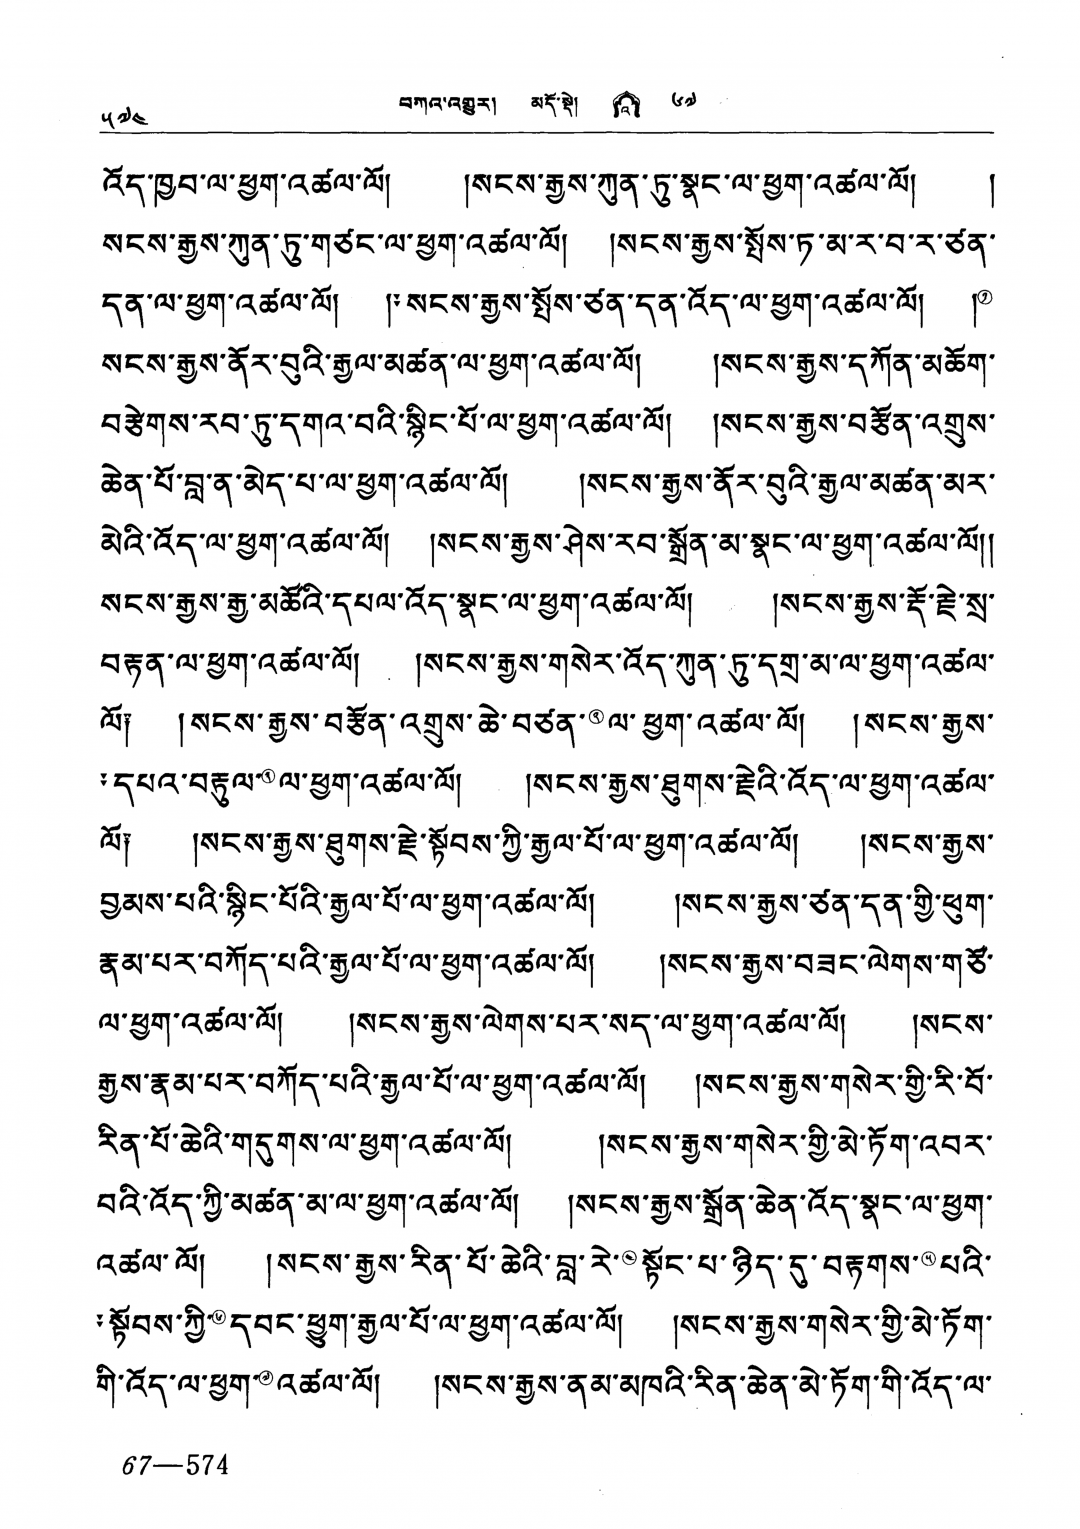 ༥༧༤ བཀའ་འགྱུར། མདོ་སྡེ། ༦༧
འོད་ཁྱབ་ལ་ཕྱག་འཚལ་ལོ། །སངས་རྒྱས་ཀུན་ཏུ་སྣང་ལ་ཕྱག་འཚལ་ལོ། །
སངས་རྒྱས་ཀུན་ཏུ་གཙང་ལ་ཕྱག་འཚལ་ལོ། །སངས་རྒྱས་སྤོས་ཏ་མ་ར་བ་ར་ཙན་
དན་ལ་ཕྱག་འཚལ་ལོ། །༔སངས་རྒྱས་སྤོས་ཙན་དན་འོད་ལ་ཕྱག་འཚལ་ལོ། །①
སངས་རྒྱས་ནོར་བུའི་རྒྱལ་མཚན་ལ་ཕྱག་འཚལ་ལོ། །སངས་རྒྱས་དཀོན་མཆོག་
བརྩེགས་རབ་ཏུ་དགའ་བའི་སྙིང་པོ་ལ་ཕྱག་འཚལ་ལོ། །སངས་རྒྱས་བརྩོན་འགྲུས་
ཆེན་པོ་བླ་ན་མེད་པ་ལ་ཕྱག་འཚལ་ལོ། །སངས་རྒྱས་ནོར་བུའི་རྒྱལ་མཚན་མར་
མེའི་འོད་ལ་ཕྱག་འཚལ་ལོ། །སངས་རྒྱས་ཤེས་རབ་སྒྲོན་མ་སྣང་ལ་ཕྱག་འཚལ་ལོ།།
སངས་རྒྱས་རྒྱ་མཚོའི་དཔལ་འོད་སྣང་ལ་ཕྱག་འཚལ་ལོ། །སངས་རྒྱས་རྡོ་རྗེ་སྲ་
བརྟན་ལ་ཕྱག་འཚལ་ལོ། །སངས་རྒྱས་གསེར་འོད་ཀུན་ཏུ་དགྲ་མ་ལ་ཕྱག་འཚལ་
ལོ༔ །སངས་རྒྱས་བརྩོན་འགྲུས་ཆེ་བཙན་②ལ་ཕྱག་འཚལ་ལོ། །སངས་རྒྱས་
༔དཔའ་བརྟུལ་③ལ་ཕྱག་འཚལ་ལོ། །སངས་རྒྱས་ཐུགས་རྗེའི་འོད་ལ་ཕྱག་འཚལ་
ལོ༔ །སངས་རྒྱས་ཐུགས་རྗེ་སྟོབས་ཀྱི་རྒྱལ་པོ་ལ་ཕྱག་འཚལ་ལོ། །སངས་རྒྱས་
བྱམས་པའི་སྙིང་པོའི་རྒྱལ་པོ་ལ་ཕྱག་འཚལ་ལོ། །སངས་རྒྱས་ཙན་དན་གྱི་ཕུག་
རྣམ་པར་བཀོད་པའི་རྒྱལ་པོ་ལ་ཕྱག་འཚལ་ལོ། །སངས་རྒྱས་བཟང་ལེགས་གཙོ་
ལ་ཕྱག་འཚལ་ལོ། །སངས་རྒྱས་ལེགས་པར་སད་ལ་ཕྱག་འཚལ་ལོ། །སངས་
རྒྱས་རྣམ་པར་བཀོད་པའི་རྒྱལ་པོ་ལ་ཕྱག་འཚལ་ལོ། །སངས་རྒྱས་གསེར་གྱི་རི་བོ་
རིན་པོ་ཆེའི་གདུགས་ལ་ཕྱག་འཚལ་ལོ། །སངས་རྒྱས་གསེར་གྱི་མེ་ཏོག་འབར་
བའི་འོད་ཀྱི་མཚན་མ་ལ་ཕྱག་འཚལ་ལོ། །སངས་རྒྱས་སྒྲོན་ཆེན་འོད་སྣང་ལ་ཕྱག་
འཚལ་ལོ། །སངས་རྒྱས་རིན་པོ་ཆེའི་བླ་རེ་④སྟོང་པ་ཉིད་དུ་བརྟགས་⑤པའི་
༔སྟོབས་ཀྱི་⑥དབང་ཕྱུག་རྒྱལ་པོ་ལ་ཕྱག་འཚལ་ལོ། །སངས་རྒྱས་གསེར་གྱི་མེ་ཏོག་
གི་འོད་ལ་ཕྱག་⑦འཚལ་ལོ། །སངས་རྒྱས་ནམ་མཁའི་རིན་ཆེན་མེ་ཏོག་གི་འོད་ལ་
67—574